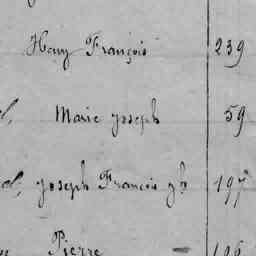 Henry François 239
Marie joseph 59
joseph Francois jh 197
Pierre